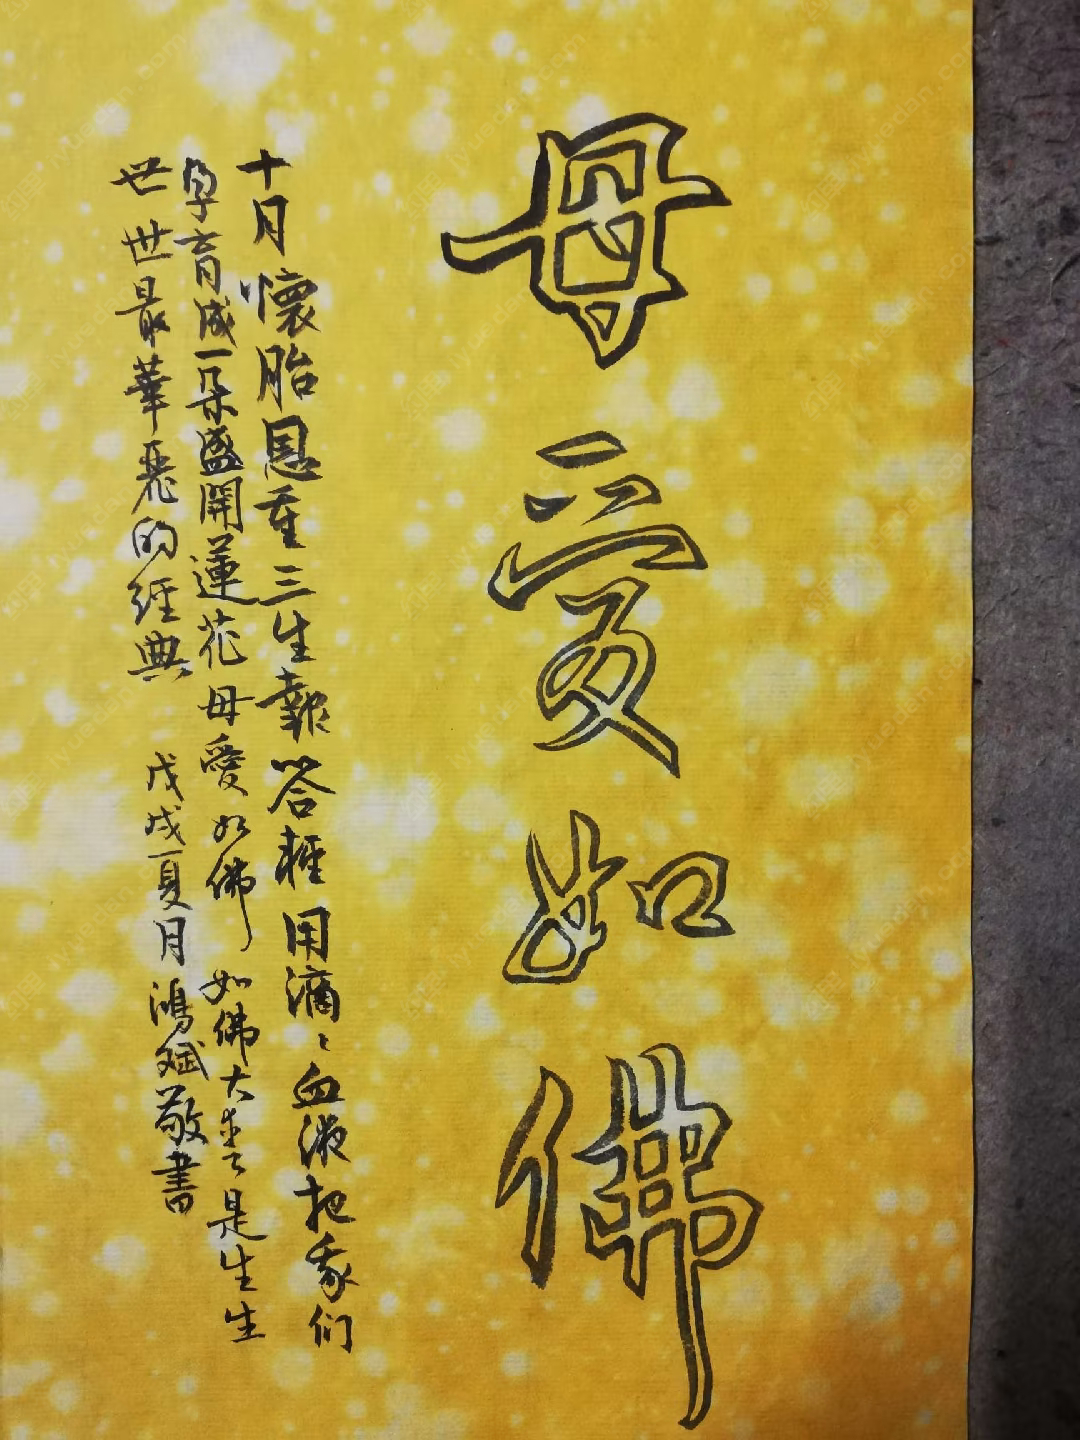 母愛如佛
十月懷胎恩重三生報答輕用滴滴血液把我们
孕育成一朵盛開蓮花母愛如佛如佛大愛是生生
世世最華麗的經典 戊戌夏月鴻斌敬書